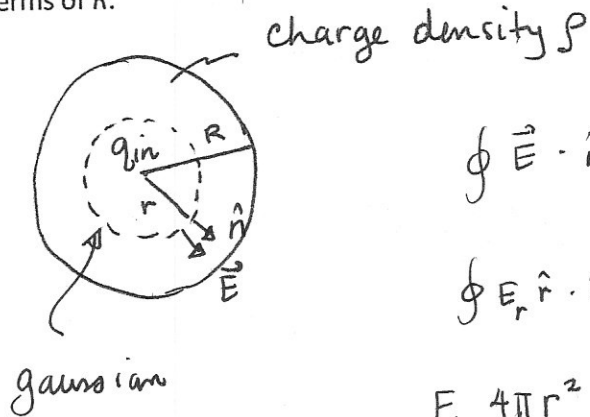 terms of R.
charge density ρ
q_in
R
r
n̂
E⃗
gaussian
∮ E⃗ ·
∮ E_r r̂ ·
E 4π r²